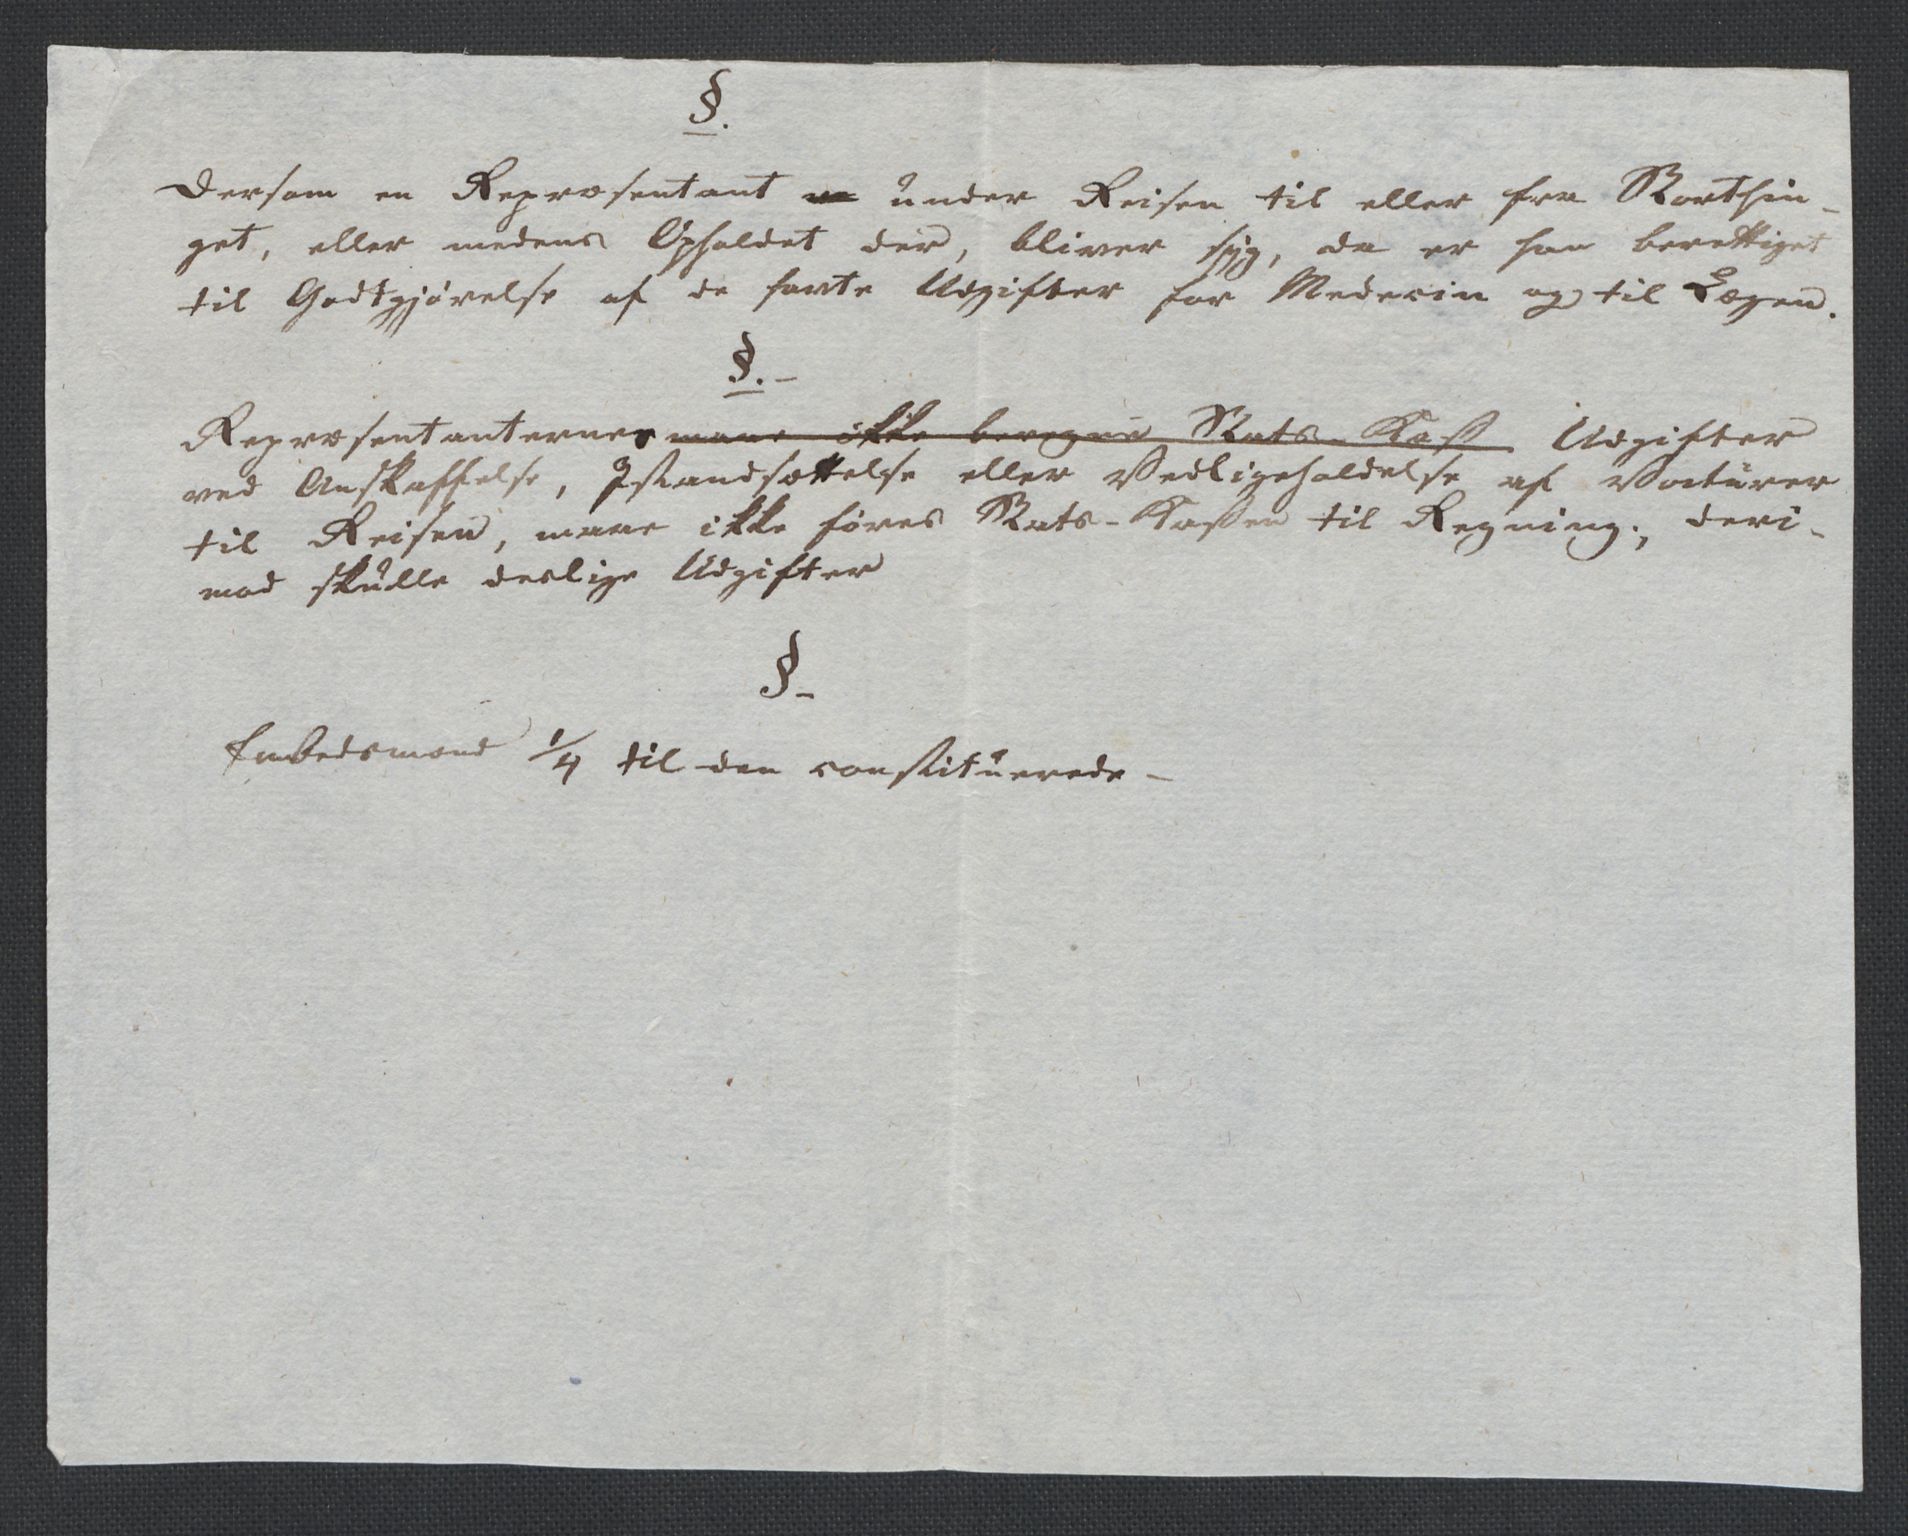 §.
Dersom en Repræsentant under Reisen til eller fra Storthin-
get, eller medens Opholdet der, bliver syg, da er han berettiget
til Godtgjørelse af de havte Udgifter for Medecin og til Lægen.
§.-
Repræsentanternes maae ikke beregne Stats-Kass Udgifter
ved Anskaffelse, Istandsættelse eller Vedligeholdelse af Voiturer
til Reisen, maae ikke føres Stats-Kassen til Regning; deri-
mod skulle deslige Udgifter
§-
Embedsmænd 1/4 til den constituerede-